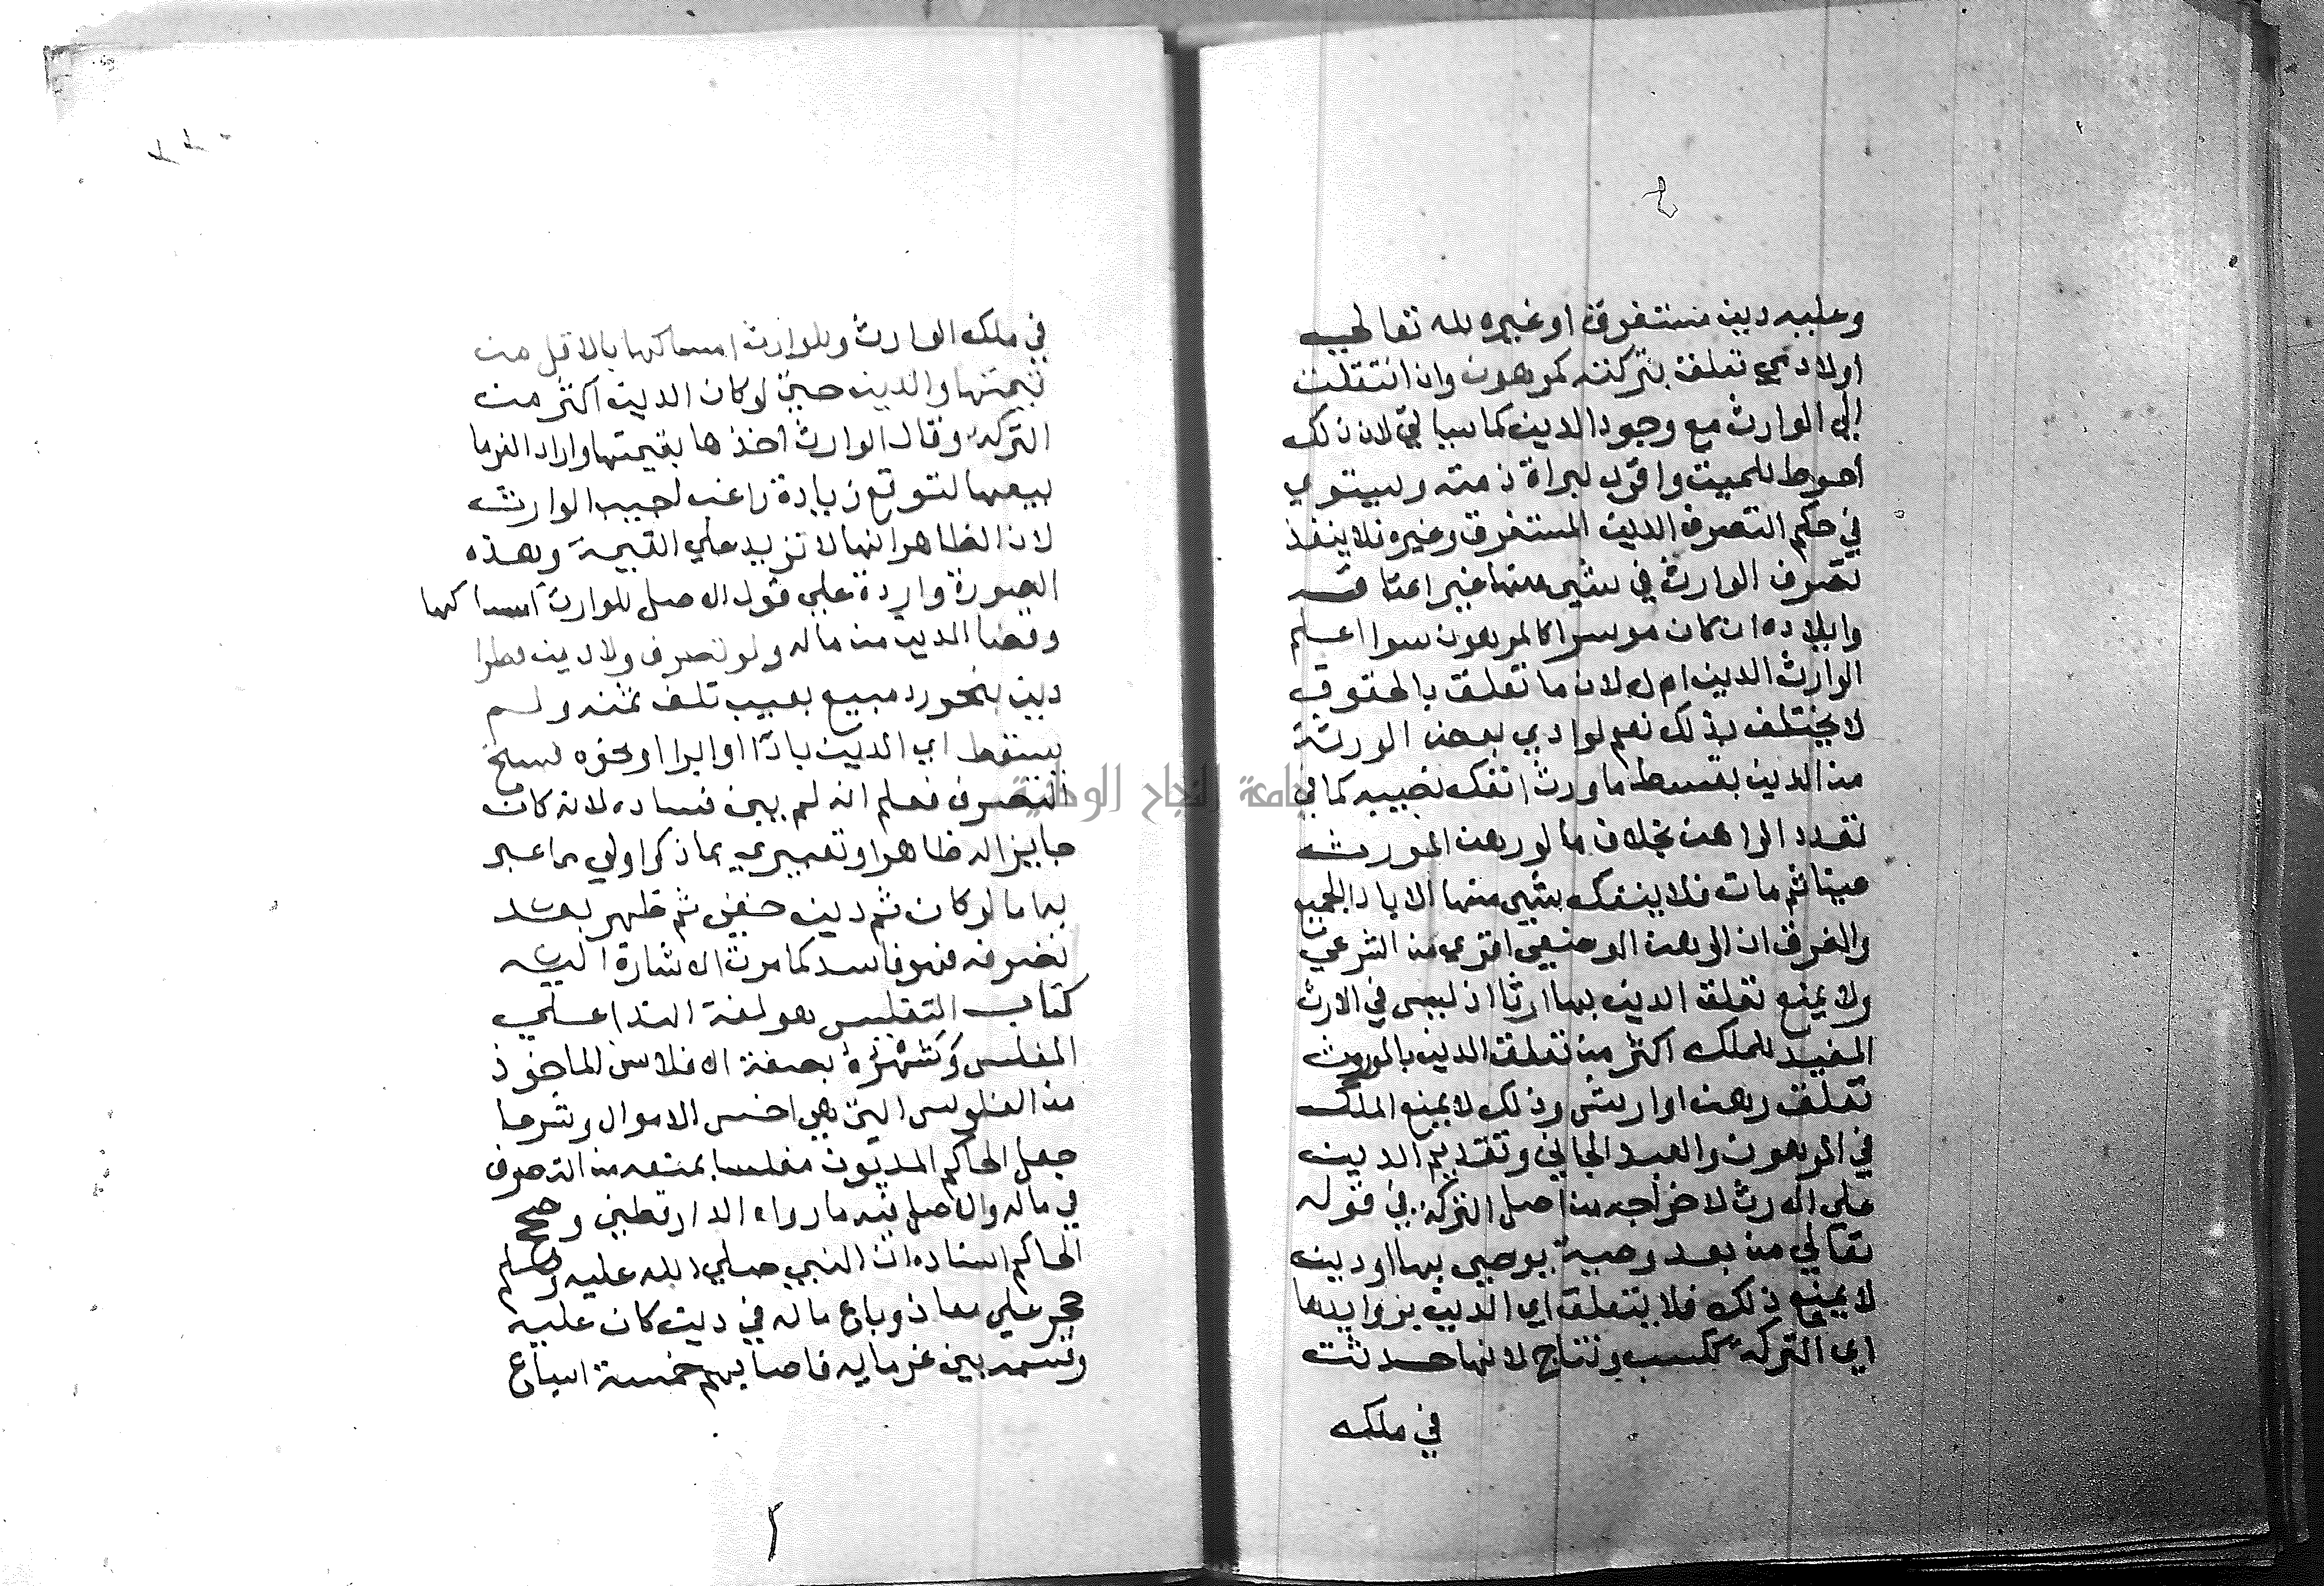 وعليه دين مستغرق او غيره لله تعالي
اولادمي تعلق بتركته كمرهون وان انتقلت
الي الوارث مع وجود الدين كما سياتي لان ذلك
احوط للميت واقرب لبراة ذمته ويستوي
في حكم التصرف الدين المستغرق وغيره فلا ينفذ
تصرف الوارث في شي منها غير اعتاقه
وايلاده ان كان موسرا كالمرهون سوا اعلم
الوارث الدين ام لا لان ما تعلق بالحقوق
لا يختلف بذلك نعم لو ادي بعض الورثة
من الدين بقسط ما ورث انفك نصيبه كما في
تعدد الراهن بخلاف ما لو رهن المورث
عينا ثم مات فلا ينفك شي منها الا باداء الجميع
والفرق ان الرهن الوضعي اقوي من الشرعي
ولا يمنع تعلق الدين بها ارثا اذ ليس في الارث
المفيد للملك اكثر من تعلق الدين بالموروث
تعلق رهن او ارش وذلك لا يمنع الملك
في المرهون والعبد الجاني وتقديم الدين
علي الارث لاخراجه من اصل التركة في قوله
تعالي من بعد وصية يوصي بها او دين
لا يمنع ذلك فلا يتعلق اي الدين بزوايدها
اي التركة ككسب ونتاج لانها حدثت
في ملكه
في ملك الوارث وللوارث امساكها بالاقل من
قيمتها والدين حتي لو كان الدين اكثر من
التركة وقال الوارث اخذها بقيمتها واراد الغرما
بيعها لتوقع زيادة راغب اجيب الوارث
لان الظاهر انها لا تزيد علي القيمة وهذه
الصورة واردة علي قول الاصل للوارث امساكها
وقضا الدين من ماله ولو تصرف ولا دين فطرا
دين بنحو رد مبيع بعيب تلف ثمنه ولم
يسقط اي الدين باداا او ابرا او نحوه فسخ
التصرف فعلم انه لم يبن فساده لانه كان
جايزا له ظاهرا وتعبيري بما ذكر اولي مما عبر
به اما لو كان ثم دين خفي ثم ظهر بعد
تصرفه فهو فاسد كما مرت الاشارة اليه
كتاب التفليس هو لغة الندا علي
المفلس وشهره بصفة الافلاس الماخوذ
من الفلوس التي هي اخس الاموال وشرعا
جعل الحاكم المديون مفلسا بمنعه من التصرف
في ماله والاصل فيه ما رواه الدارقطني وصحح
الحاكم اسناده ان النبي صلي الله عليه وسلم
حجر علي معاذ وباع ماله في دين كان عليه
وقسمه بين غرمايه فاصابهم خمسة اسباع
جامعة النجاح الوطنية